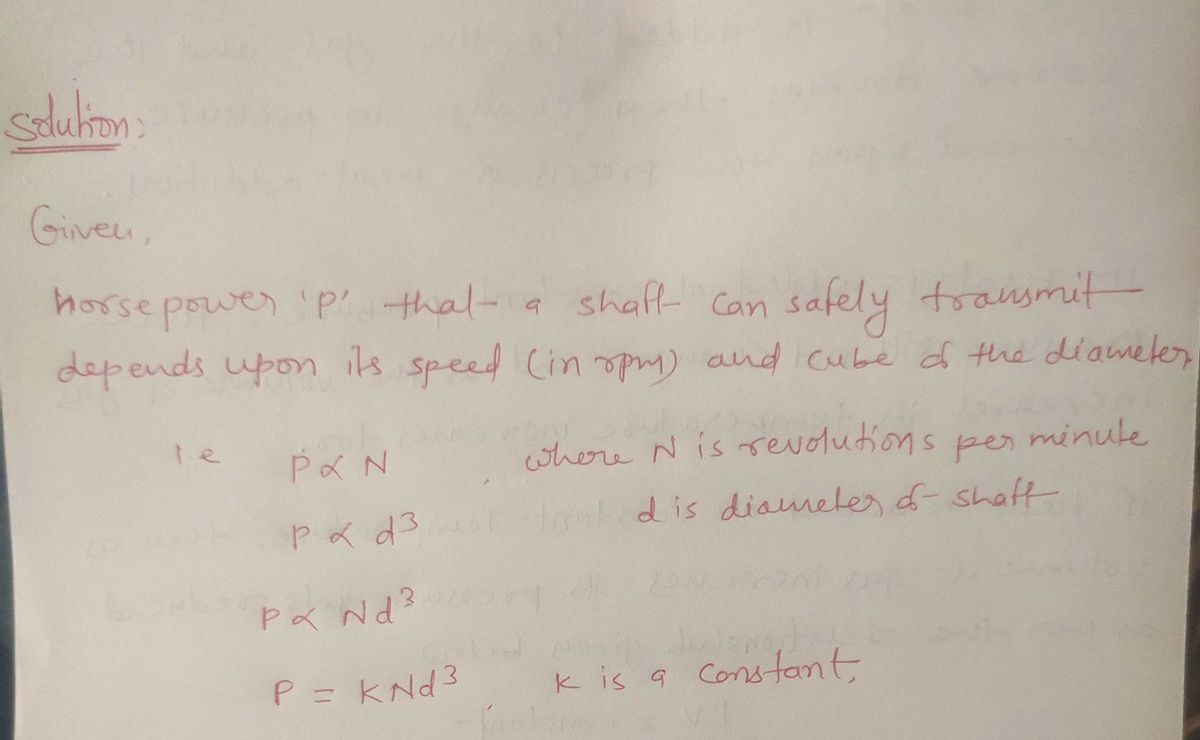 Solution:
Given,
horse power 'P' that a shaft can safely transmit
depends upon its speed (in rpm) and cube of the diameter
i.e P ∝ N , where N is revolutions per minute
P ∝ d³ d is diameter of shaft
P ∝ Nd³
P = KNd³, K is a constant,